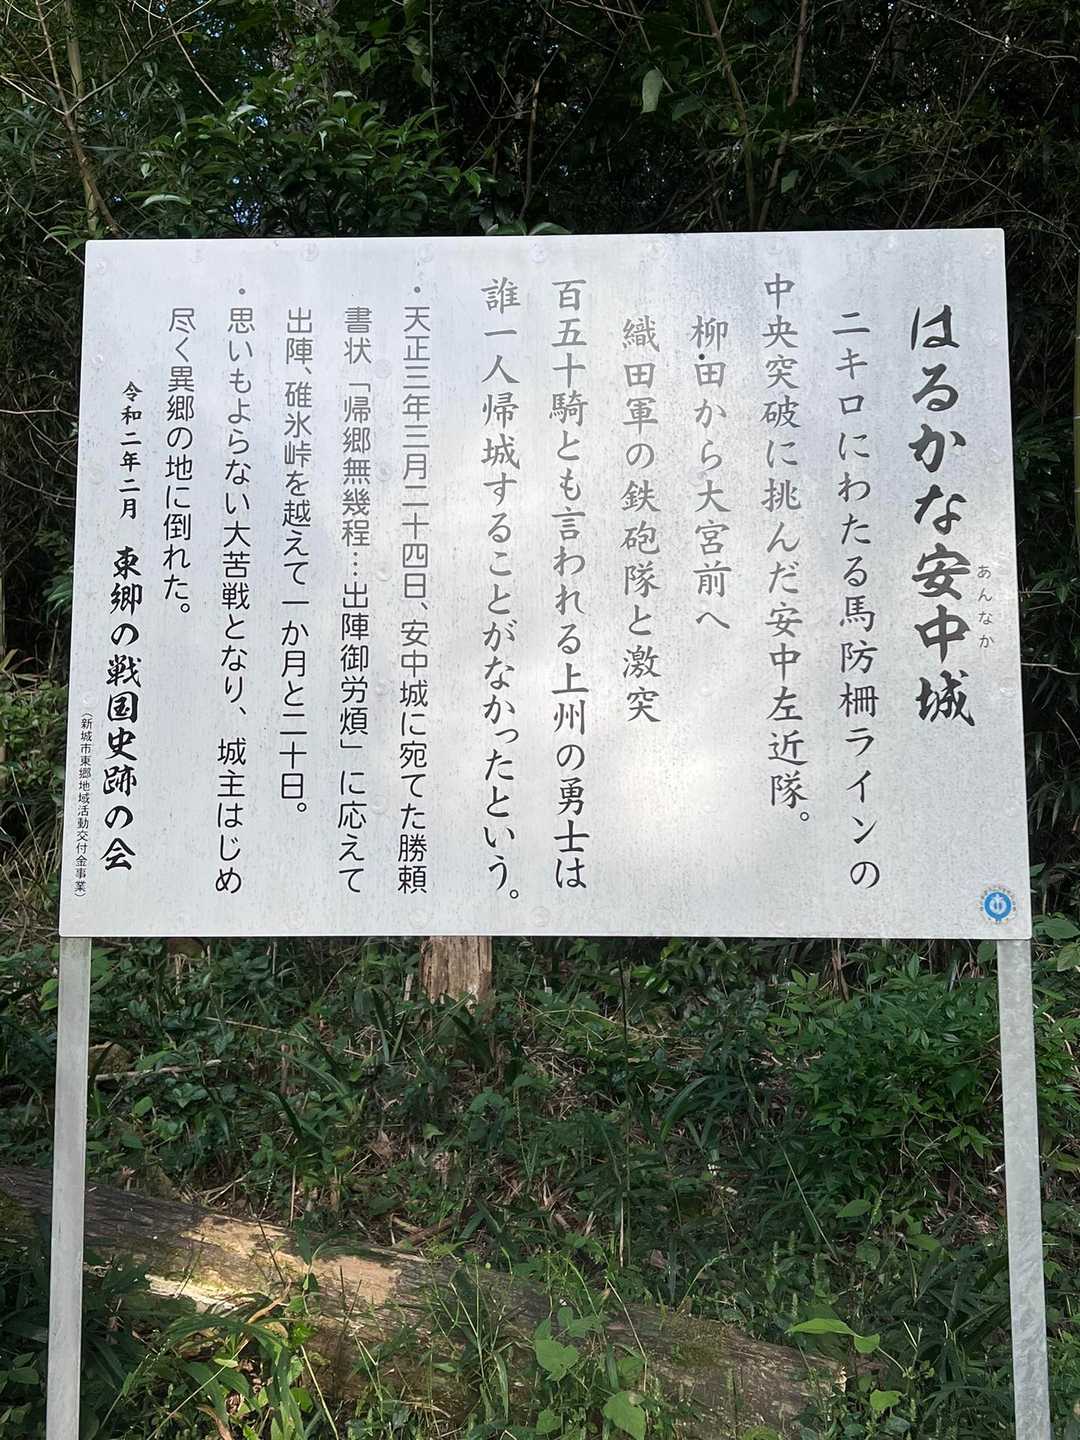 はるかな安中城
あんなか
二キロにわたる馬防柵ラインの
中央突破に挑んだ安中左近隊。
柳・田から大宮前へ
織田軍の鉄砲隊と激突
百五十騎とも言われる上州の勇士は
誰一人帰城することがなかったという。
・天正三年三月二十四日、安中城に宛てた勝頼
書状「帰郷無幾程…出陣御労煩」に応えて
出陣、碓氷峠を越えて一か月と二十日。
・思いもよらない大苦戦となり、城主はじめ
尽く異郷の地に倒れた。
令和二年二月 東郷の戦国史跡の会
（新城市東郷地域活動交付金事業）